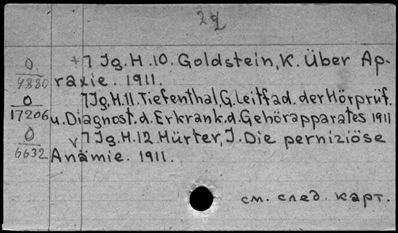 22
0 +7 Jg. H. 10. Goldstein, K. Über Ap-
4880 raxie. 1911.
0 7 Jg. H. 11. Tiefenthal, G. Leitfad. der Hörprüf.
17206 u. Diagnost. d. Erkrank. d. Gehörapparates 1911
0 v 7 Jg. H. 12. Hürter, J. Die perniziöse
6632 Anämie. 1911.
см. след. карт.